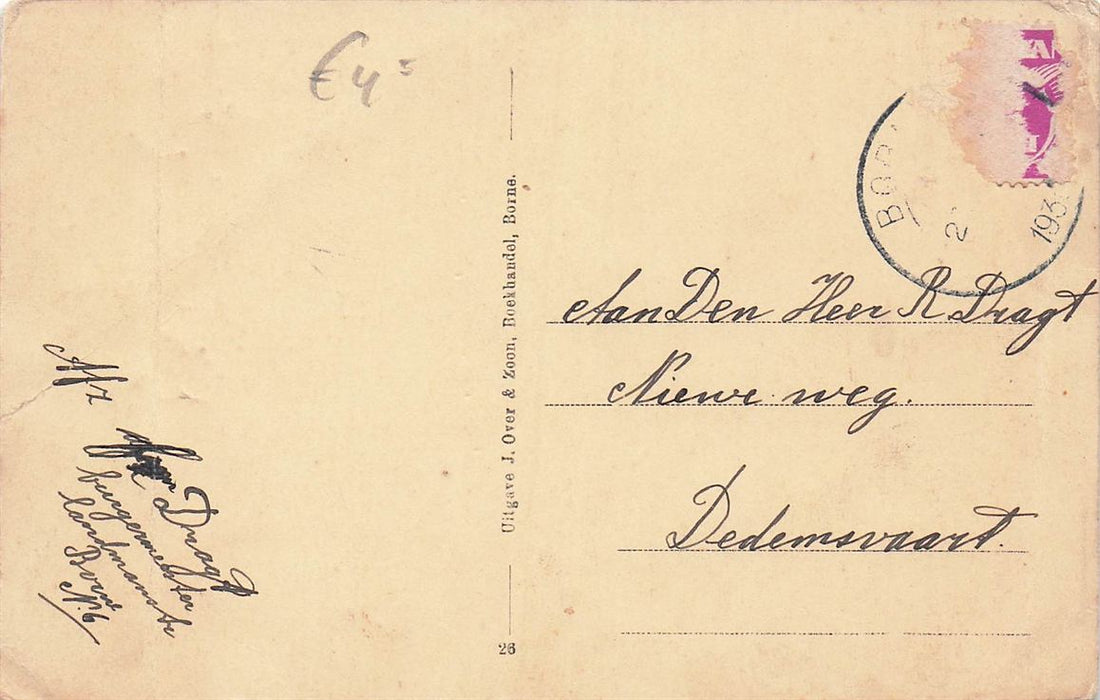 € 4=
Aan Den Heer R Dragt
Niewe weg.
Dedemsvaart.
Afz
Dragt
burgermeester
landmanstr
Borne
N. 6
Uitgave J. Over & Zoon, Boekhandel, Borne.
26
BOR
2
193
A